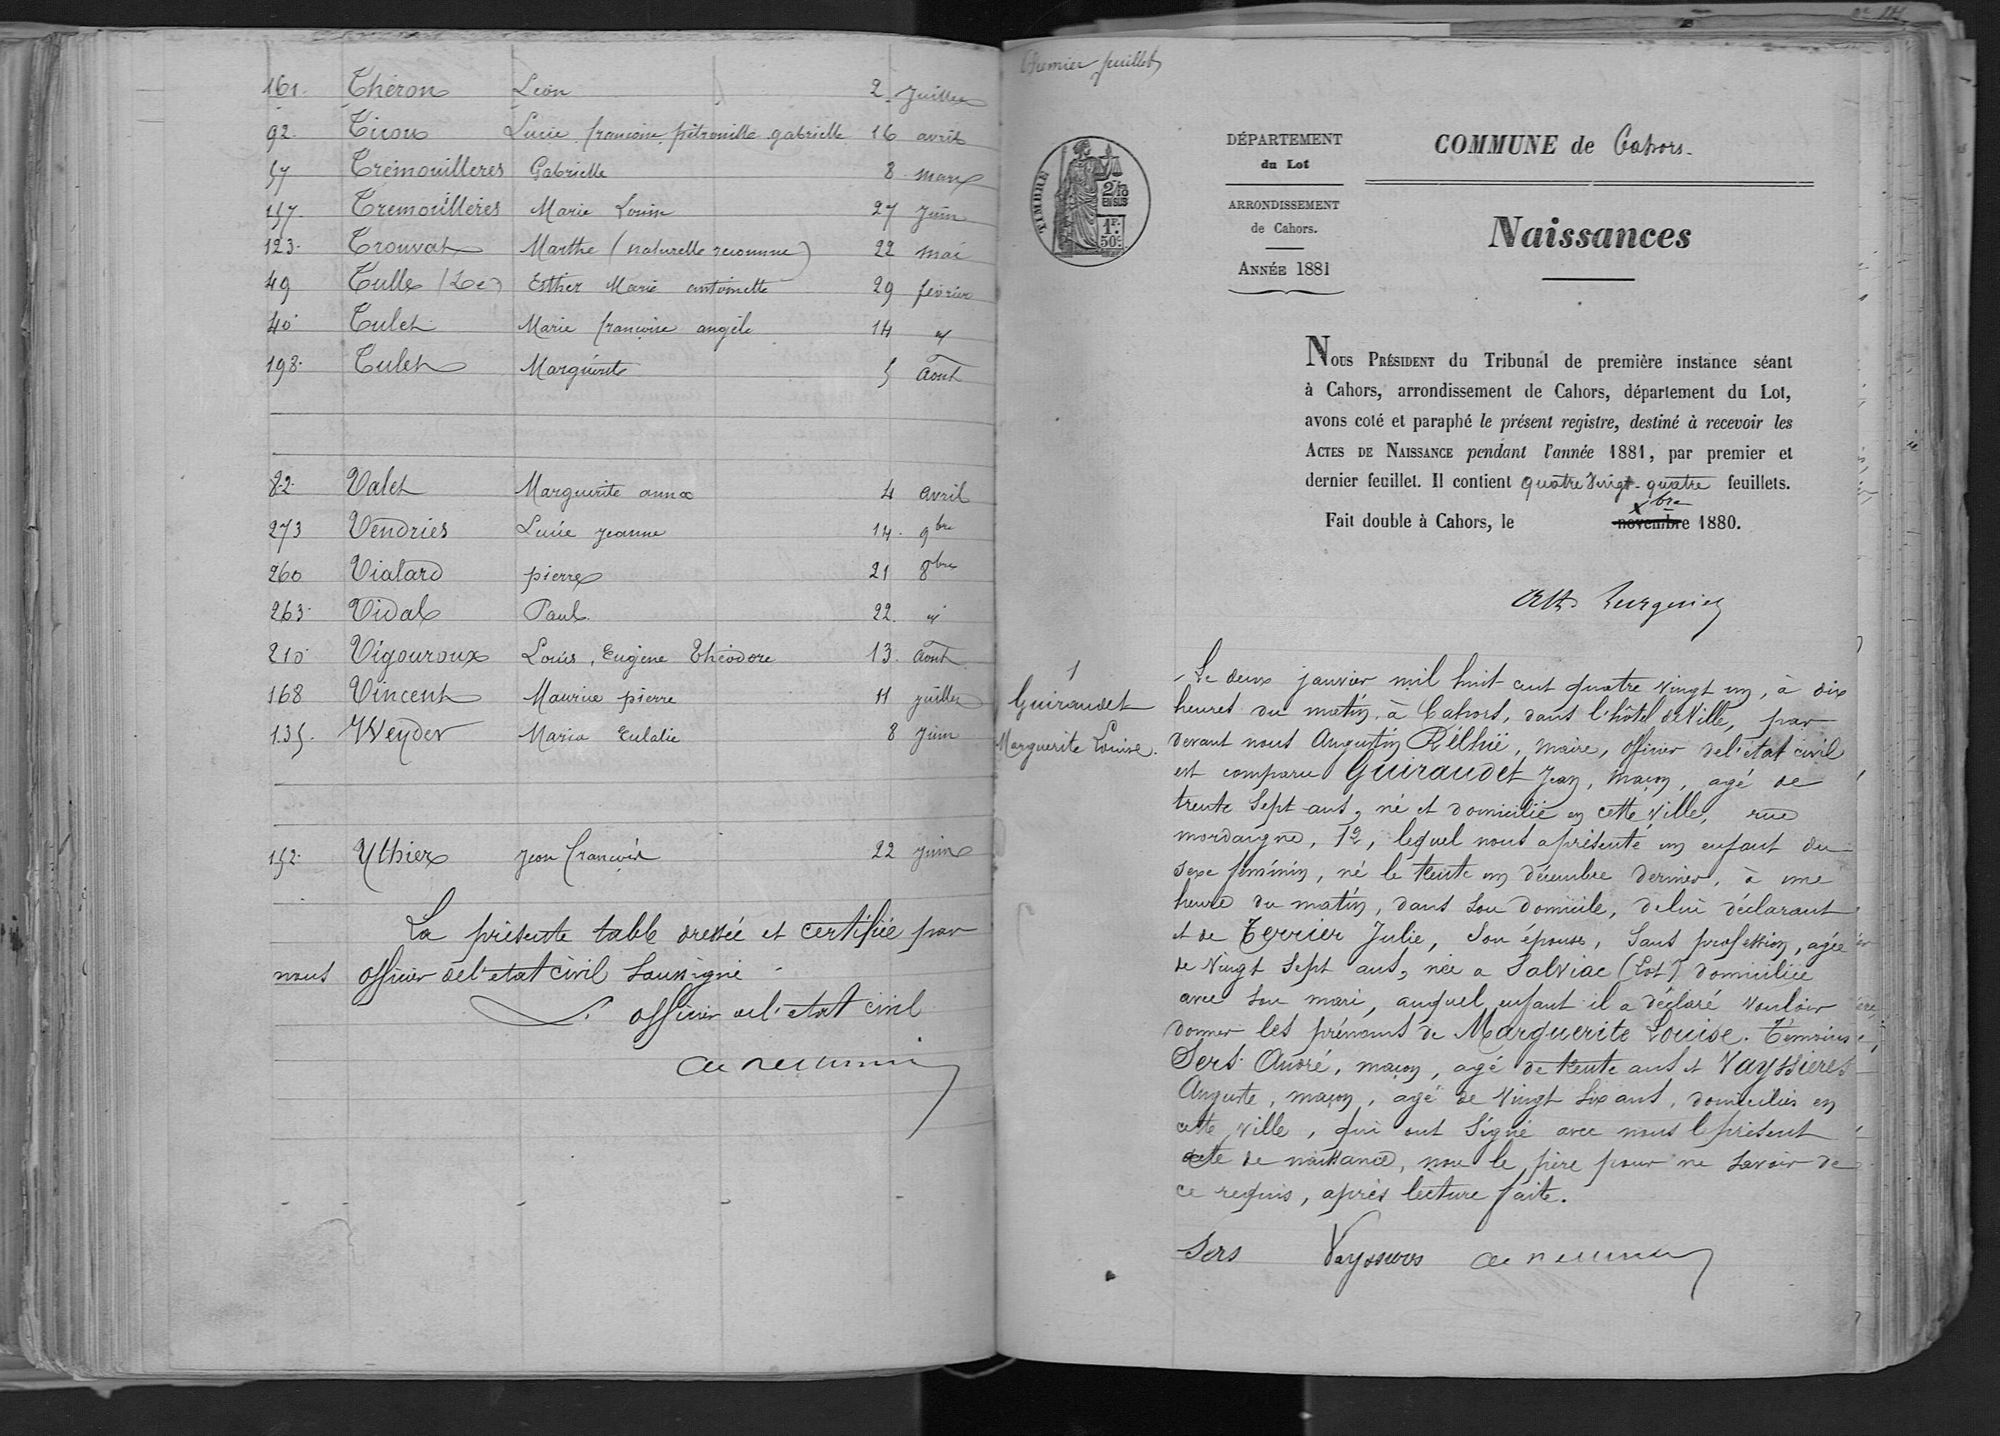 161. Théron Léon 2. Juillet
92. Tirou Lucie françoise pétronille gabrielle 16 avril
57 Trémouillères Gabrielle 8. mars
157. Tremouillères Marie Louise 27 Juin
123. Trouvat Marthe (naturelle reconnue) 22 mai
49 Tulle (De) Esther Marie antoinette 29 février
40 Tulet Marie françoise angèle 14 "
198. Tulet Marguerite 5 Aout
82. Valet Marguerite anna 4 avril
273 Vendries Lucie Jeanne 14. 9bre
260 Vialard pierre 21 8bre
263. Vidal Paul 22. "
210. Vigouroux Louis, Eugène Théodore 13. Aout
168 Vincent Maurice pierre 11 juillet
135. Weyder Maria Eulalie 8 Juin
152. Ythier Jean François 22 juin
La présente table dressée et certifiée par
nous officier de l'etat civil soussigné
L'officier de l'etat civil
Premier feuillet
TIMBRE
2/10 EN SUS
1F. 50c
DÉPARTEMENT
du Lot
ARRONDISSEMENT
de Cahors.
ANNÉE 1881
COMMUNE de Cahors.
Naissances
NOUS PRÉSIDENT du Tribunal de première instance séant
à Cahors, arrondissement de Cahors, département du Lot,
avons coté et paraphé le présent registre, destiné à recevoir les
ACTES DE NAISSANCE pendant l'année 1881, par premier et
dernier feuillet. Il contient quatre vingt-quatre feuillets.
Xbre
Fait double à Cahors, le novembre 1880.
1
Guiraudet
Marguerite Louise.
Le deux janvier mil huit cent quatre vingt un, à dix
heures du matin, à Cahors, dans l'hôtel de Ville, par
devant nous Augustin Relhié, maire, officier de l'etat civil
est comparu Guiraudet Jean, maçon, agé de
trente sept ans, né et domicilié en cette ville, rue
mordaigne, 12, lequel nous a présenté un enfant du
sexe féminin, né le trente un décembre dernier, à une
heure du matin, dans son domicile, de lui déclarant
et de Terrier Julie, son épouse, sans profession, agée
de vingt sept ans, née a Salviac (Lot) domiciliée
avec son mari, auquel enfant il a déclaré vouloir
donner les prénoms de Marguerite Louise. Témoins
Sers André, maçon, agé de trente ans et Vayssières
Auguste, maçon, agé de vingt six ans, domiciliés en
cette ville, qui ont signé avec nous le présent
acte de naissance, non le père pour ne savoir de
ce requis, après lecture faite.
Sers Vayssieres